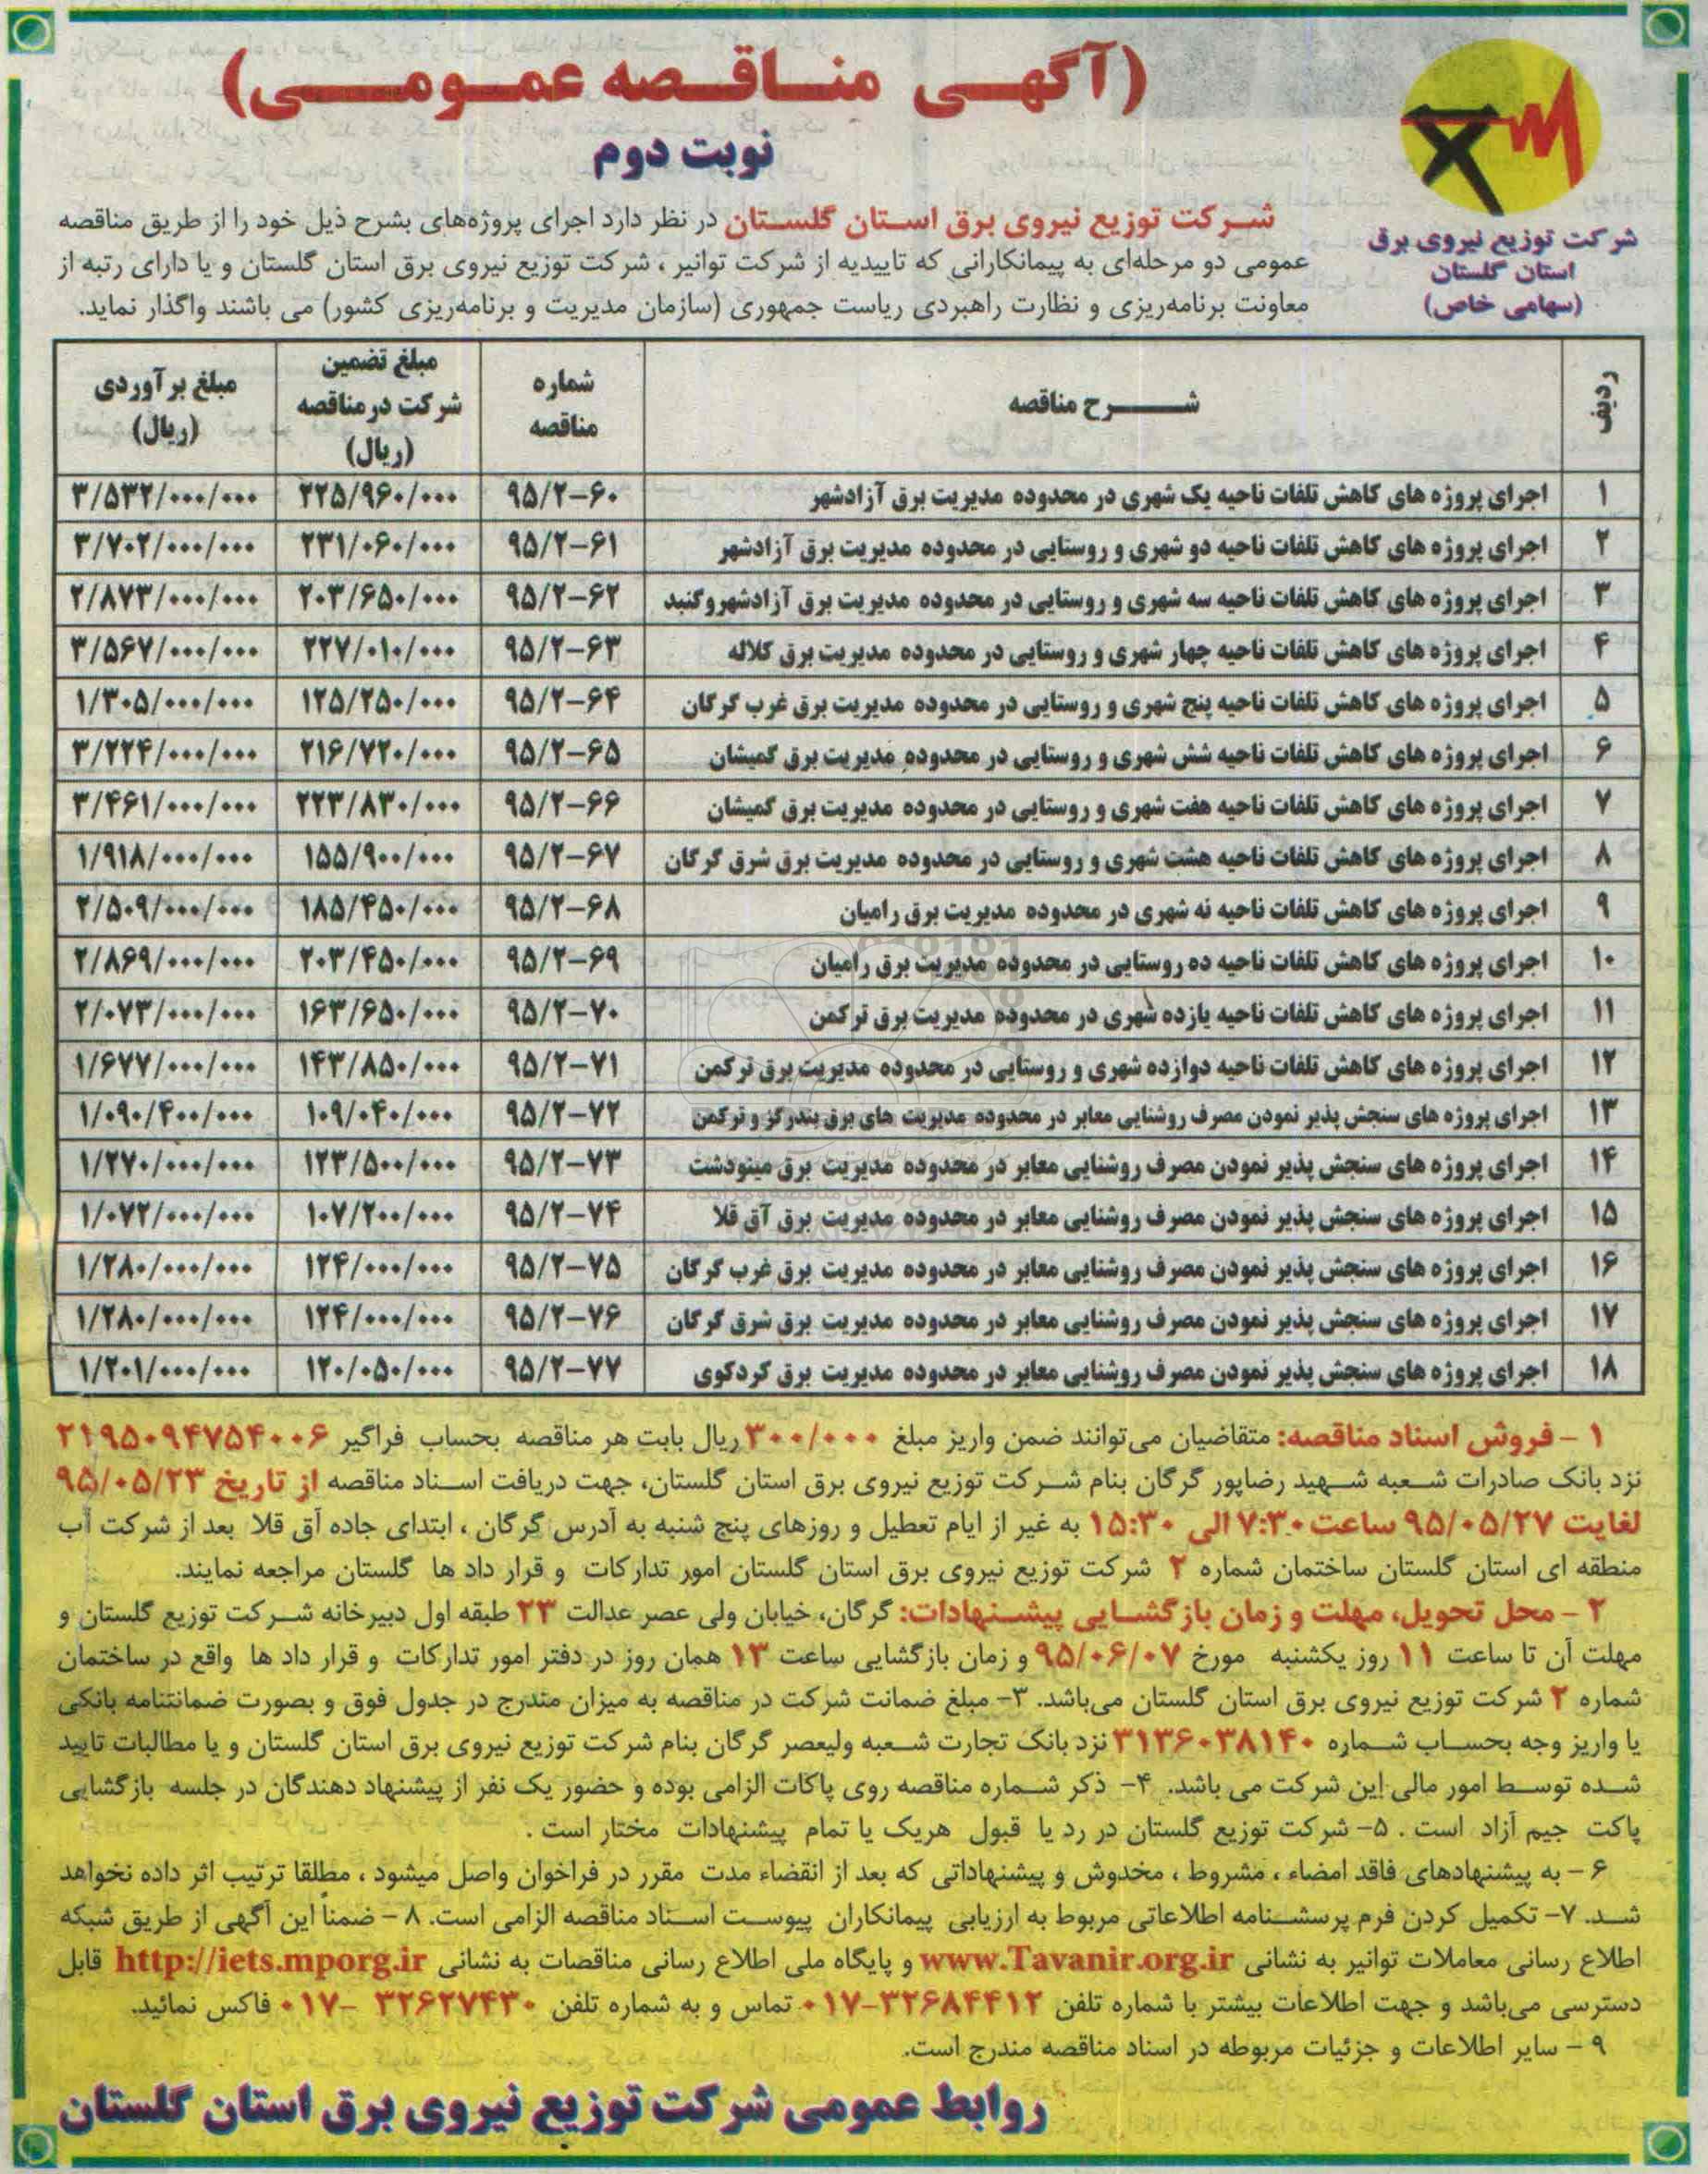 (آگهی مناقصه عمومی)
نوبت دوم
شرکت توزیع نیروی برق
استان گلستان
(سهامی خاص)
شرکت توزیع نیروی برق استان گلستان در نظر دارد اجرای پروژه‌های بشرح ذیل خود را از طریق مناقصه
عمومی دو مرحله‌ای به پیمانکارانی که تاییدیه از شرکت توانیر ، شرکت توزیع نیروی برق استان گلستان و یا دارای رتبه از
معاونت برنامه‌ریزی و نظارت راهبردی ریاست جمهوری (سازمان مدیریت و برنامه‌ریزی کشور) می باشند واگذار نماید.
ردیف | شرح مناقصه | شماره مناقصه | مبلغ تضمین شرکت در مناقصه (ریال) | مبلغ برآوردی (ریال)
۱ | اجرای پروژه های کاهش تلفات ناحیه یک شهری در محدوده مدیریت برق آزادشهر | ۹۵/۲-۶۰ | ۲۲۵/۹۶۰/۰۰۰ | ۳/۵۳۲/۰۰۰/۰۰۰
۲ | اجرای پروژه های کاهش تلفات ناحیه دو شهری و روستایی در محدوده مدیریت برق آزادشهر | ۹۵/۲-۶۱ | ۲۳۱/۰۶۰/۰۰۰ | ۳/۷۰۲/۰۰۰/۰۰۰
۳ | اجرای پروژه های کاهش تلفات ناحیه سه شهری و روستایی در محدوده مدیریت برق آزادشهروگنبد | ۹۵/۲-۶۲ | ۲۰۳/۶۵۰/۰۰۰ | ۲/۸۷۳/۰۰۰/۰۰۰
۴ | اجرای پروژه های کاهش تلفات ناحیه چهار شهری و روستایی در محدوده مدیریت برق کلاله | ۹۵/۲-۶۳ | ۲۲۷/۰۱۰/۰۰۰ | ۳/۵۶۷/۰۰۰/۰۰۰
۵ | اجرای پروژه های کاهش تلفات ناحیه پنج شهری و روستایی در محدوده مدیریت برق غرب گرگان | ۹۵/۲-۶۴ | ۱۲۵/۲۵۰/۰۰۰ | ۱/۳۰۵/۰۰۰/۰۰۰
۶ | اجرای پروژه های کاهش تلفات ناحیه شش شهری و روستایی در محدوده مدیریت برق گمیشان | ۹۵/۲-۶۵ | ۲۱۶/۷۲۰/۰۰۰ | ۳/۲۲۴/۰۰۰/۰۰۰
۷ | اجرای پروژه های کاهش تلفات ناحیه هفت شهری و روستایی در محدوده مدیریت برق گمیشان | ۹۵/۲-۶۶ | ۲۲۳/۸۳۰/۰۰۰ | ۳/۴۶۱/۰۰۰/۰۰۰
۸ | اجرای پروژه های کاهش تلفات ناحیه هشت شهری و روستایی در محدوده مدیریت برق شرق گرگان | ۹۵/۲-۶۷ | ۱۵۵/۹۰۰/۰۰۰ | ۱/۹۱۸/۰۰۰/۰۰۰
۹ | اجرای پروژه های کاهش تلفات ناحیه نه شهری در محدوده مدیریت برق رامیان | ۹۵/۲-۶۸ | ۱۸۵/۴۵۰/۰۰۰ | ۲/۵۰۹/۰۰۰/۰۰۰
۱۰ | اجرای پروژه های کاهش تلفات ناحیه ده روستایی در محدوده مدیریت برق رامیان | ۹۵/۲-۶۹ | ۲۰۳/۴۵۰/۰۰۰ | ۲/۸۶۹/۰۰۰/۰۰۰
۱۱ | اجرای پروژه های کاهش تلفات ناحیه یازده شهری در محدوده مدیریت برق ترکمن | ۹۵/۲-۷۰ | ۱۶۳/۶۵۰/۰۰۰ | ۲/۰۷۳/۰۰۰/۰۰۰
۱۲ | اجرای پروژه های کاهش تلفات ناحیه دوازده شهری و روستایی در محدوده مدیریت برق ترکمن | ۹۵/۲-۷۱ | ۱۴۳/۸۵۰/۰۰۰ | ۱/۶۷۷/۰۰۰/۰۰۰
۱۳ | اجرای پروژه های سنجش پذیر نمودن مصرف روشنایی معابر در محدوده مدیریت های برق بندرگز و ترکمن | ۹۵/۲-۷۲ | ۱۰۹/۰۴۰/۰۰۰ | ۱/۰۹۰/۴۰۰/۰۰۰
۱۴ | اجرای پروژه های سنجش پذیر نمودن مصرف روشنایی معابر در محدوده مدیریت برق مینودشت | ۹۵/۲-۷۳ | ۱۲۳/۵۰۰/۰۰۰ | ۱/۲۷۰/۰۰۰/۰۰۰
۱۵ | اجرای پروژه های سنجش پذیر نمودن مصرف روشنایی معابر در محدوده مدیریت برق آق قلا | ۹۵/۲-۷۴ | ۱۰۷/۲۰۰/۰۰۰ | ۱/۰۷۲/۰۰۰/۰۰۰
۱۶ | اجرای پروژه های سنجش پذیر نمودن مصرف روشنایی معابر در محدوده مدیریت برق غرب گرگان | ۹۵/۲-۷۵ | ۱۲۴/۰۰۰/۰۰۰ | ۱/۲۸۰/۰۰۰/۰۰۰
۱۷ | اجرای پروژه های سنجش پذیر نمودن مصرف روشنایی معابر در محدوده مدیریت برق شرق گرگان | ۹۵/۲-۷۶ | ۱۲۴/۰۰۰/۰۰۰ | ۱/۲۸۰/۰۰۰/۰۰۰
۱۸ | اجرای پروژه های سنجش پذیر نمودن مصرف روشنایی معابر در محدوده مدیریت برق کردکوی | ۹۵/۲-۷۷ | ۱۲۰/۰۵۰/۰۰۰ | ۱/۲۰۱/۰۰۰/۰۰۰
۱ - فروش اسناد مناقصه: متقاضیان می‌توانند ضمن واریز مبلغ ۳۰۰/۰۰۰ ریال بابت هر مناقصه بحساب فراگیر ۲۱۹۵۰۹۴۷۵۴۰۰۶
نزد بانک صادرات شعبه شهید رضاپور گرگان بنام شرکت توزیع نیروی برق استان گلستان، جهت دریافت اسناد مناقصه از تاریخ ۹۵/۰۵/۲۳
لغایت ۹۵/۰۵/۲۷ ساعت ۷:۳۰ الی ۱۵:۳۰ به غیر از ایام تعطیل و روزهای پنج شنبه به آدرس گرگان ، ابتدای جاده آق قلا بعد از شرکت آب
منطقه ای استان گلستان ساختمان شماره ۲ شرکت توزیع نیروی برق استان گلستان امور تدارکات و قرار داد ها گلستان مراجعه نمایند.
۲ - محل تحویل، مهلت و زمان بازگشایی پیشنهادات: گرگان، خیابان ولی عصر عدالت ۲۳ طبقه اول دبیرخانه شرکت توزیع گلستان و
مهلت آن تا ساعت ۱۱ روز یکشنبه مورخ ۹۵/۰۶/۰۷ و زمان بازگشایی ساعت ۱۳ همان روز در دفتر امور تدارکات و قرار داد ها واقع در ساختمان
شماره ۲ شرکت توزیع نیروی برق استان گلستان می‌باشد. ۳- مبلغ ضمانت شرکت در مناقصه به میزان مندرج در جدول فوق و بصورت ضمانتنامه بانکی
یا واریز وجه بحساب شماره ۳۱۳۶۰۳۸۱۴۰ نزد بانک تجارت شعبه ولیعصر گرگان بنام شرکت توزیع نیروی برق استان گلستان و یا مطالبات تایید
شده توسط امور مالی این شرکت می باشد. ۴- ذکر شماره مناقصه روی پاکات الزامی بوده و حضور یک نفر از پیشنهاد دهندگان در جلسه بازگشایی
پاکت جیم آزاد است . ۵- شرکت توزیع گلستان در رد یا قبول هریک یا تمام پیشنهادات مختار است .
۶ - به پیشنهادهای فاقد امضاء ، مشروط ، مخدوش و پیشنهاداتی که بعد از انقضاء مدت مقرر در فراخوان واصل میشود ، مطلقا ترتیب اثر داده نخواهد
شد. ۷- تکمیل کردن فرم پرسشنامه اطلاعاتی مربوط به ارزیابی پیمانکاران پیوست اسناد مناقصه الزامی است. ۸ - ضمناً این آگهی از طریق شبکه
اطلاع رسانی معاملات توانیر به نشانی www.Tavanir.org.ir و پایگاه ملی اطلاع رسانی مناقصات به نشانی http://iets.mporg.ir قابل
دسترسی می‌باشد و جهت اطلاعات بیشتر با شماره تلفن ۳۲۶۸۴۴۱۲-۰۱۷ تماس و به شماره تلفن ۳۲۶۲۷۴۳۰ -۰۱۷ فاکس نمائید.
۹ - سایر اطلاعات و جزئیات مربوطه در اسناد مناقصه مندرج است.
روابط عمومی شرکت توزیع نیروی برق استان گلستان